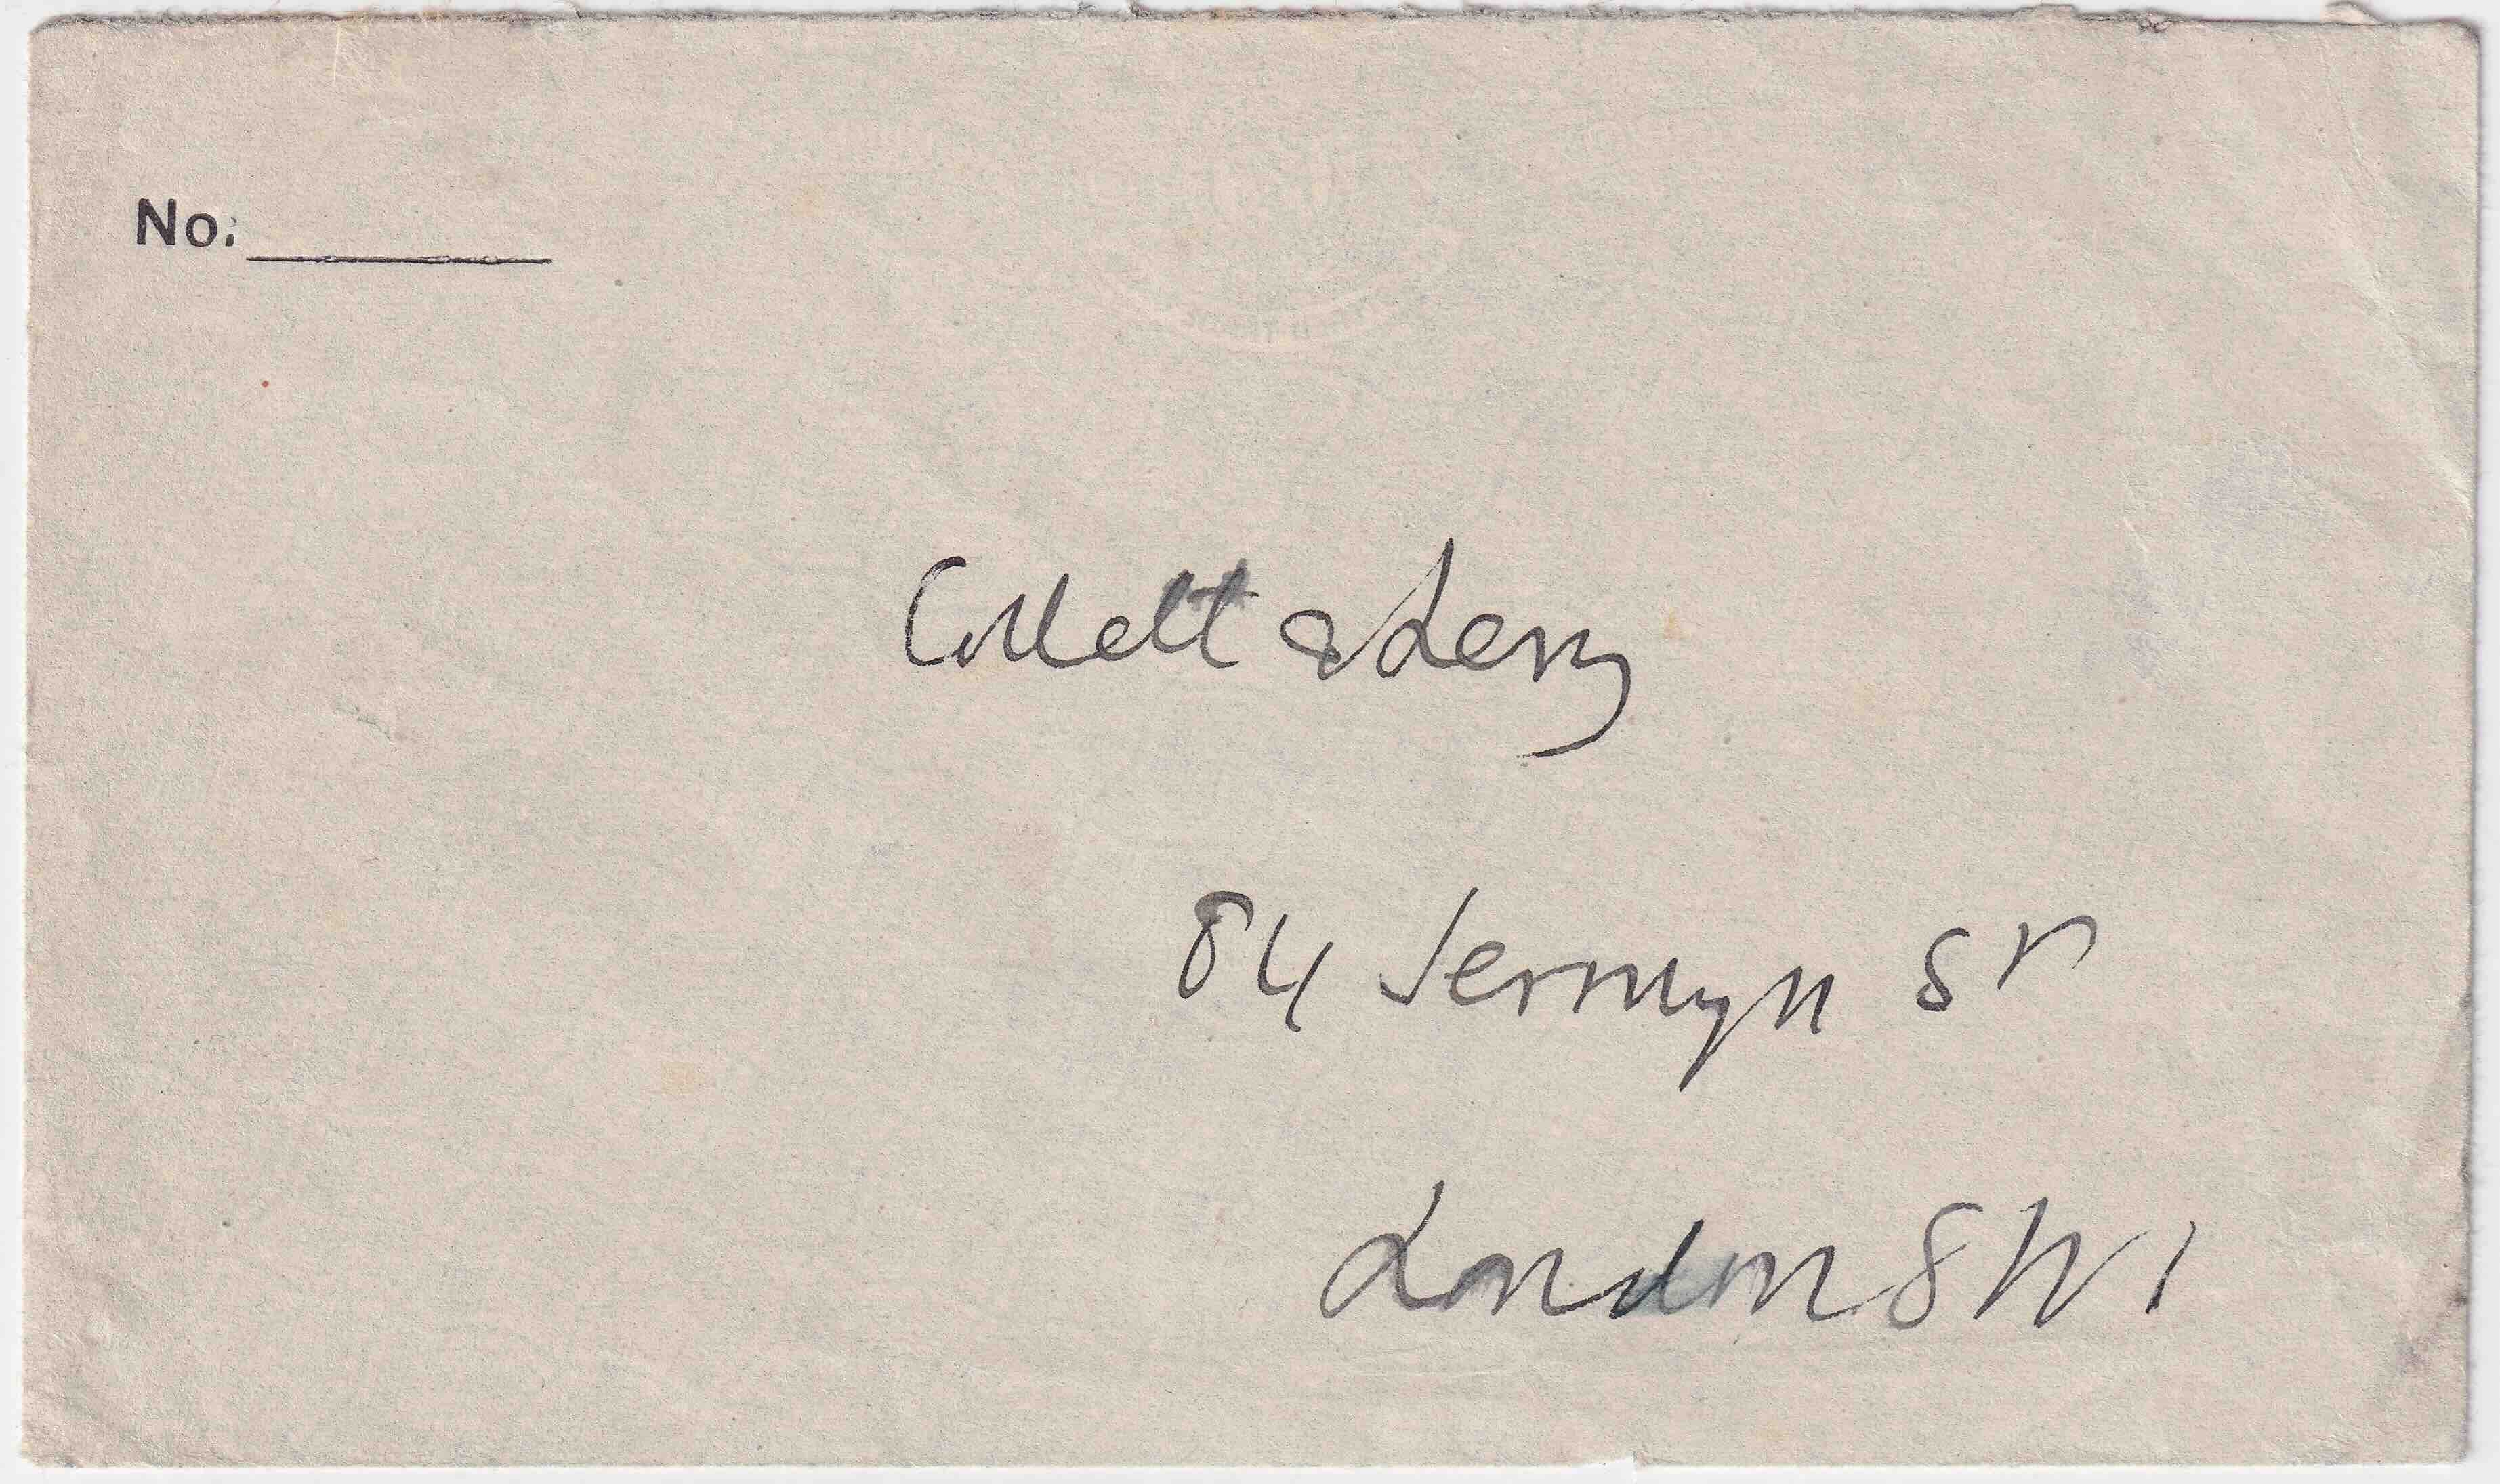 No. ______
Collett & Levy
84 Jermyn St
London SW1